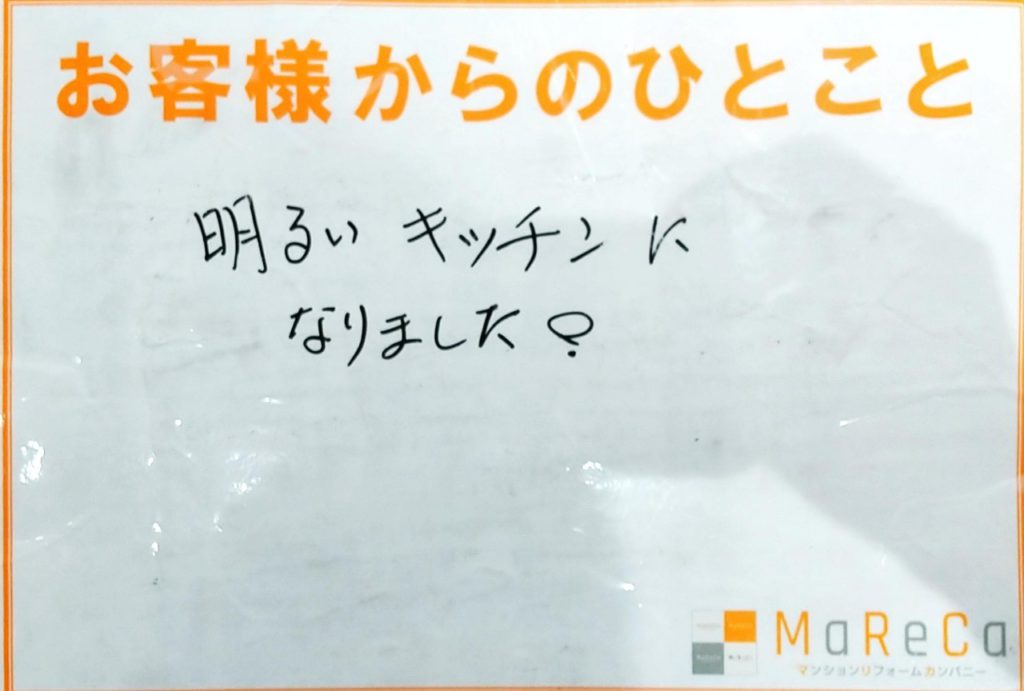 お客様からのひとこと
明るいキッチンに
なりました!
MaReCa
マンションリフォームカンパニー